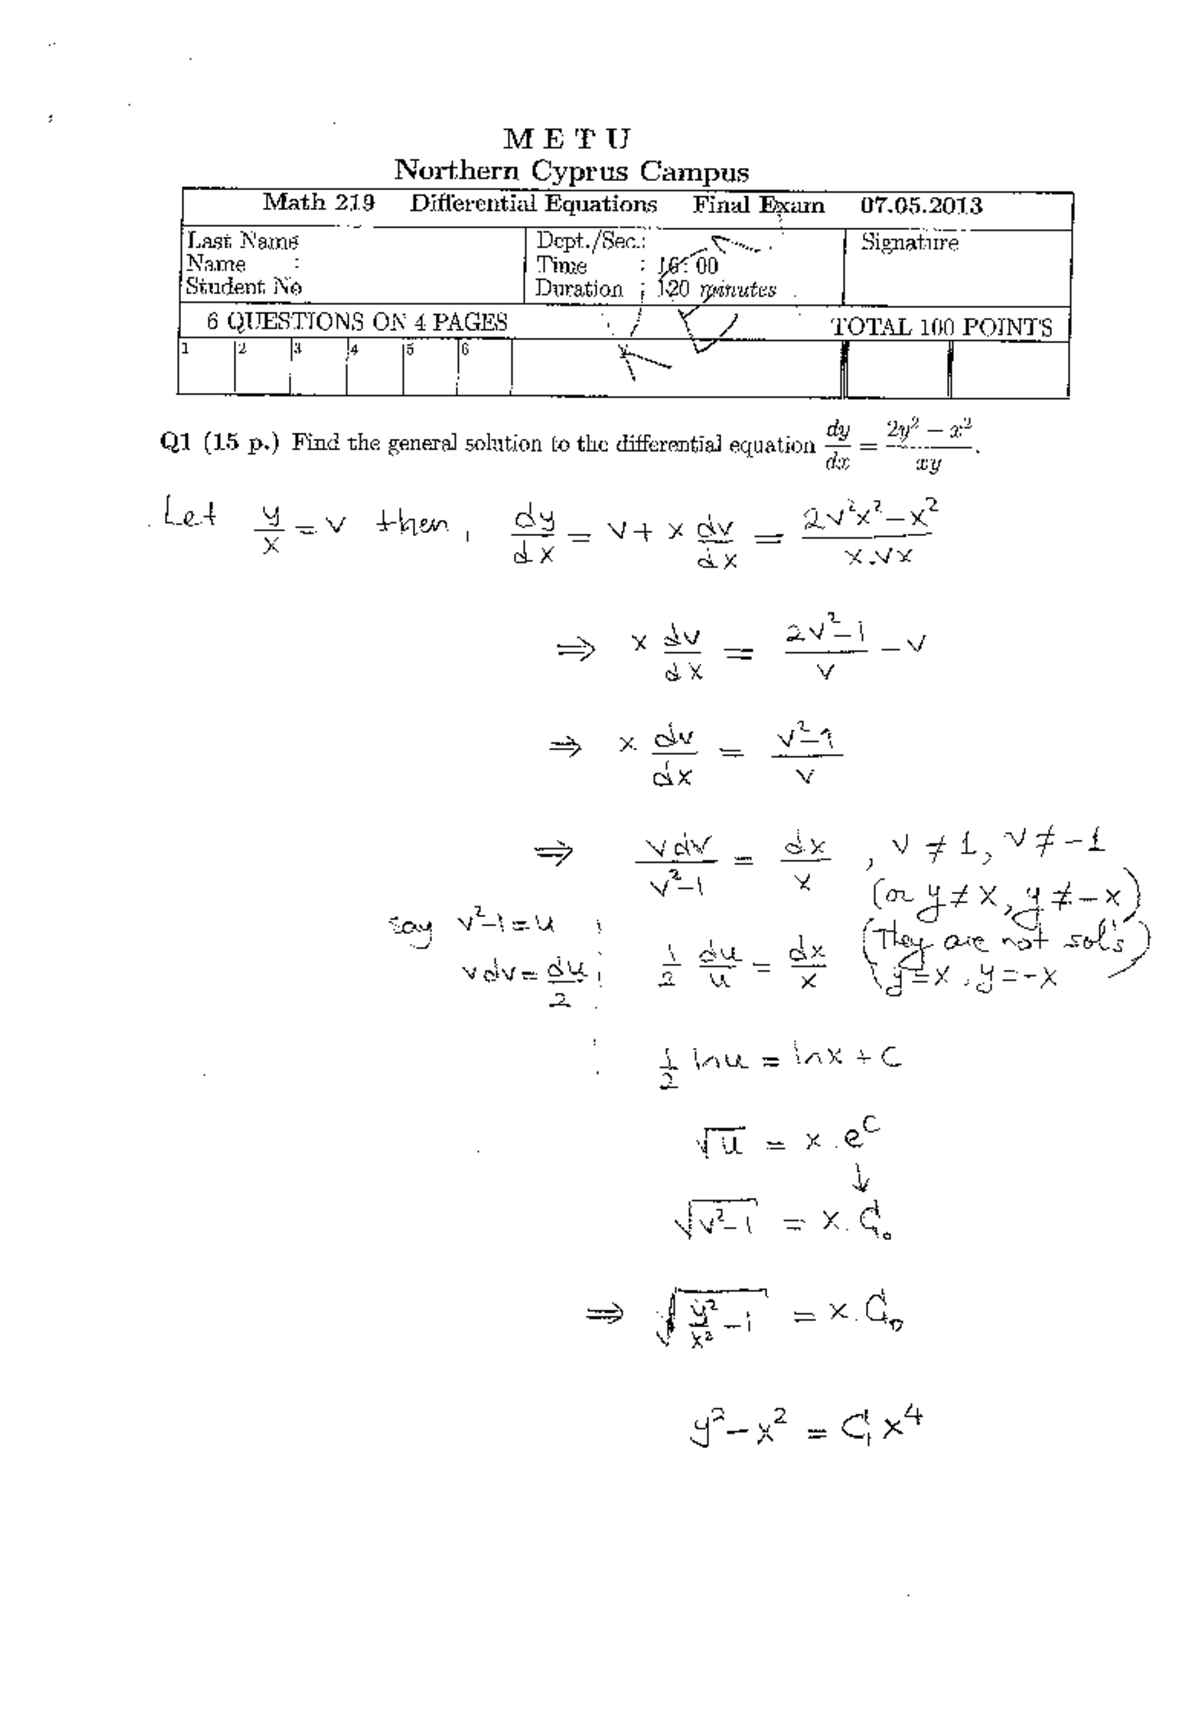 M E T U
Northern Cyprus Campus
Math 219 Differential Equations Final Exam 07.05.2013
Last Name
Name :
Student No
Dept./Sec.:
Time : 16:00
Duration : 120 minutes
Signature
6 QUESTIONS ON 4 PAGES TOTAL 100 POINTS
1 2 3 4 5 6
Q1 (15 p.) Find the general solution to the differential equation dy/dx = (2y² − x²)/(xy).
Let y/x = v then, dy/dx = v + x dv/dx = (2v²x² − x²)/(x.vx)
⇒ x dv/dx = (2v² − 1)/v − v
⇒ x dv/dx = (v² − 1)/v
⇒ v dv/(v² − 1) = dx/x , v ≠ 1, v ≠ −1
(or y ≠ x, y ≠ −x)
(They are not sol's
y = x, y = −x)
say v² − 1 = u
v dv = du/2
1/2 du/u = dx/x
1/2 ln u = ln x + C
√u = x.e^C
↓
√(v² − 1) = x.C₀
⇒ √(y²/x² − 1) = x.C₀
y² − x² = C₁x⁴